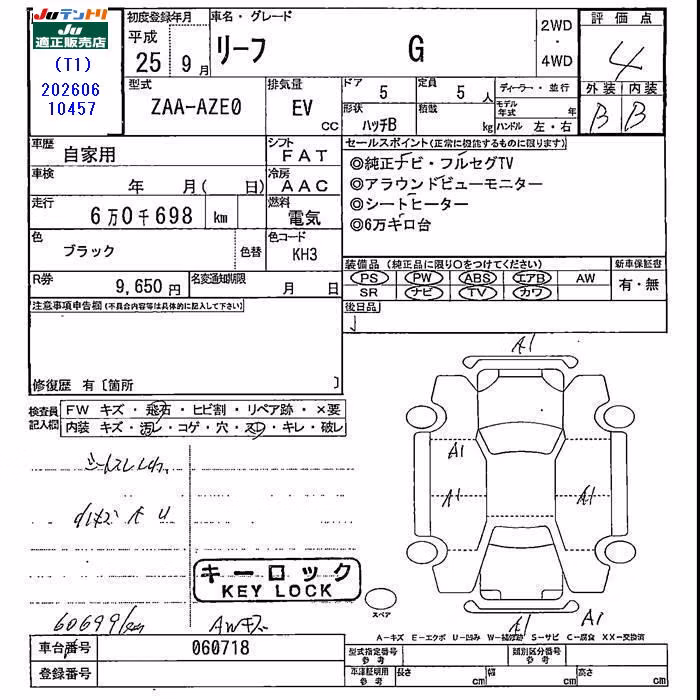 JUテントリ
JU
適正販売店
(T1)
202606
10457
初度登録年月
平成
25 9月
車名・グレード
リーフ G
2WD
・
4WD
評価点
4
外装 内装
B B
型式
ZAA-AZE0
排気量
EV
CC
ドア
5
定員
5 人
ディーラー・並行
形状
ハッチB
積載
kg
モデル年式
年
ハンドル 左・右
車歴
自家用
シフト
FAT
車検
年 月( 日)
冷房
AAC
走行
6万0千698 km
燃料
電気
色
ブラック
色替
色コード
KH3
R券
9,650円
名変通知期限
月 日
セールスポイント(正常に機能するものに限ります)
◎純正ナビ・フルセグTV
◎アラウンドビューモニター
◎シートヒーター
◎6万キロ台
装備品(純正品に限り○をつけてください)
PS PW ABS エアB AW
SR ナビ TV カワ
新車保証書
有・無
後日品
注意事項申告欄(不具合内容等は具体的に記入して下さい)
修復歴 有〔箇所 〕
検査員
記入欄
FW キズ・飛石・ヒビ割・リペア跡・×要
内装 キズ・汚レ・コゲ・穴・スレ・キレ・破レ
キーロック
KEY LOCK
60699km
AWキズ
A1
A1
A1
A1
A1
A1
スペア
A-キズ E-エクボ U-凹み W-補修跡 S-サビ C-腐食 XX-交換済
車台番号
060718
登録番号
型式指定番号
参考
類別区分番号
参考
車庫証明用
参考
長さ cm
幅 cm
高さ cm